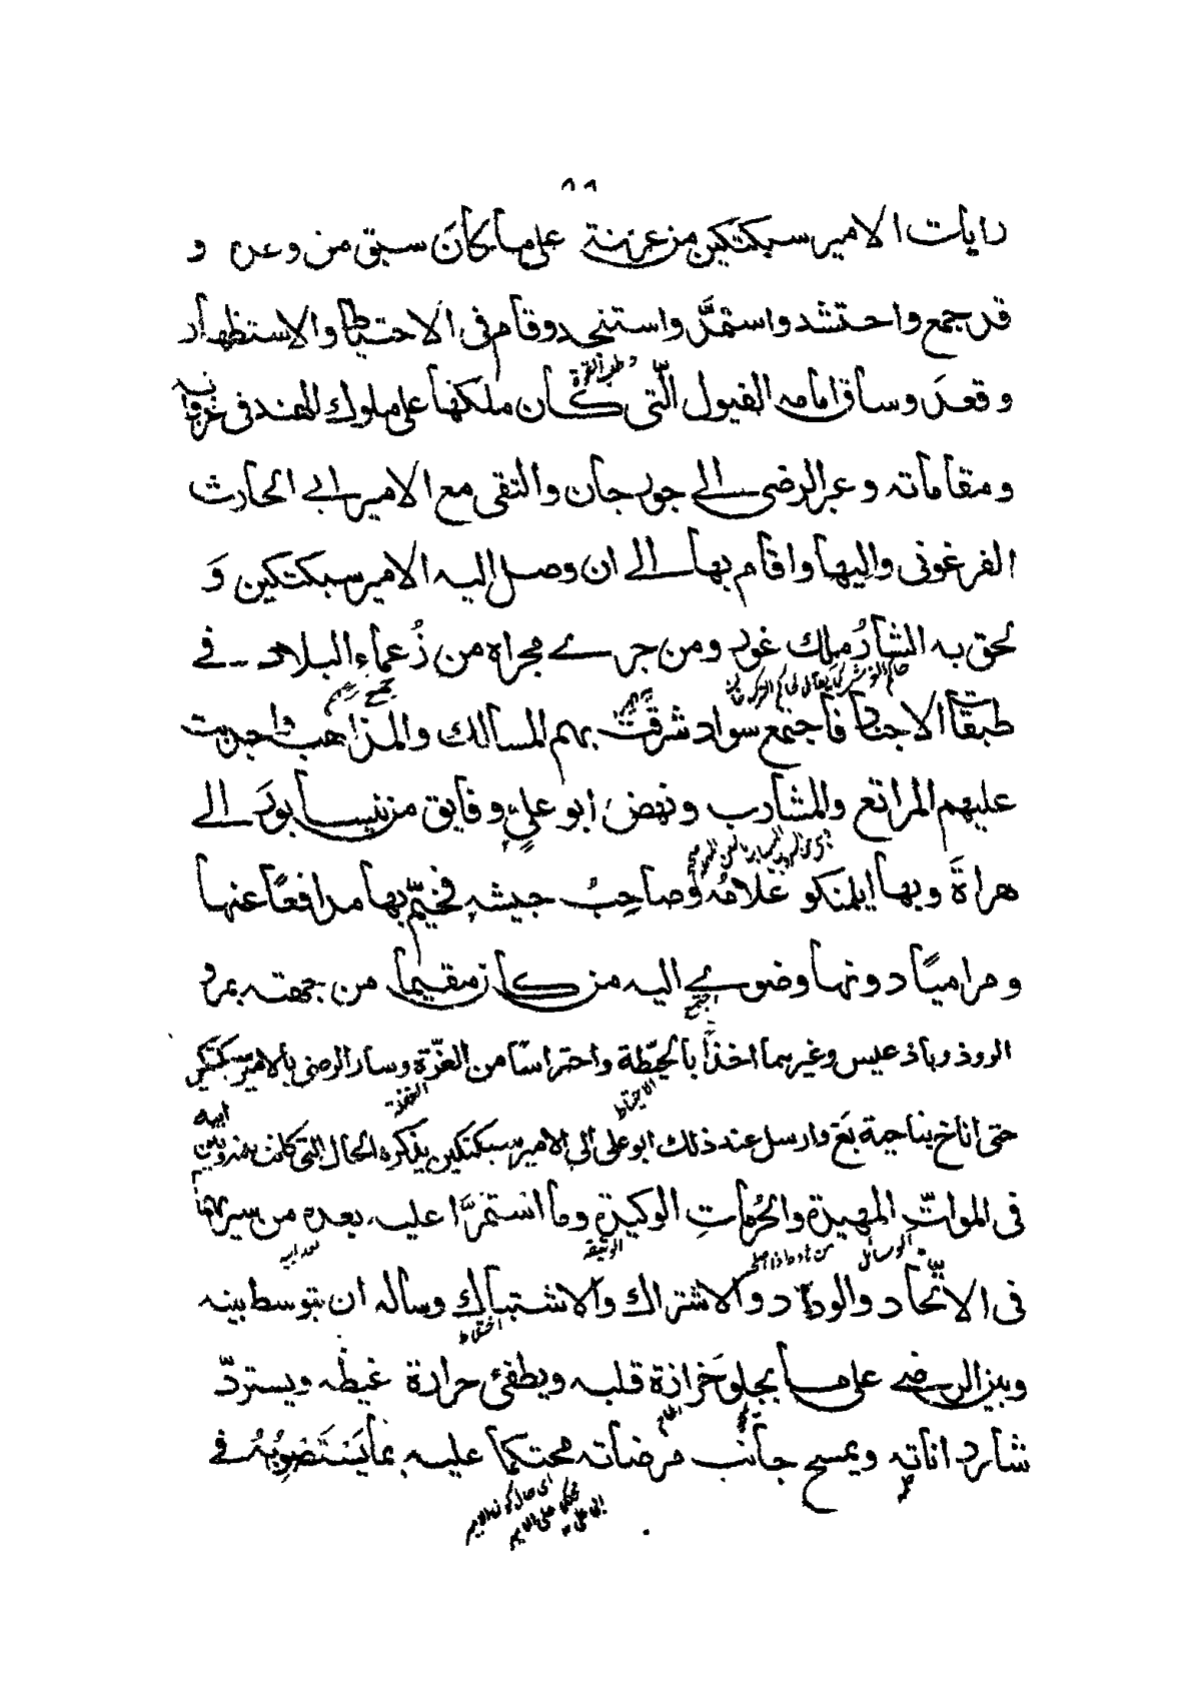 ٨٩
رايات الامير سبكتكين من غزنة على ما كان سبق من وعده و
قد جمع واحتشد واستمدّ واستنجد وقام في الاحتياط والاستظهار
وقعد وساق امامه الفيول الّتي كان ملكها على ملوك الهند في غزواته
ومقاماته وعبر الرضى الى جوزجان والتقى مع الامير ابي الحارث
الفرغوني واليها واقام بها الى ان وصل اليه الامير سبكتكين وَ
لحق به الشارُ ملك غور ومن جرى مجراه من زُعماء البلاد في
طبقات الاجناد فاجتمع سواد شرقت بهم المسالك والمذاهب واجدبت
عليهم المراتع والمشارب ونهض ابو عليٍ وفايق من نيسابورَ الى
هراةَ وبها ايلمنكو غلامُه وصاحِبُ جيشهِ فخيّم بها مدافعًا عنها
ومراميًا دونها وضوى اليه من كان مقيما من جهته بمرو
اجتمع
الروذ وباذعيس وغيرهما اخذًا بالحيّطة واحتراسًا من الغرّة وسار الرضى بالامير سبكتكين
الاحتياط الغفلة
حتى اناخ بناحية بَغ وارسل عند ذلك ابو علي الى الامير سبكتكين يذكره الحال التي كانت بينه وبين
ابيه
في المواتّ المهيدة والحُرماتِ الوكيدة وما استمرَّا عليه بعده من سيرتهما
الوسائل الوثيقة بعد ابيه
في الاتّحاد والوداد والاشتراك والاشتباك وساله ان يتوسط بينه
اختلاط
وبين الرضى على ما يجلو حَزازة قلبه ويطفئ حرارة غيظه ويستردّ
شارد اناته ويمسح جانب مرضاته محتكما عليه بما يَستَصْوِبُه في